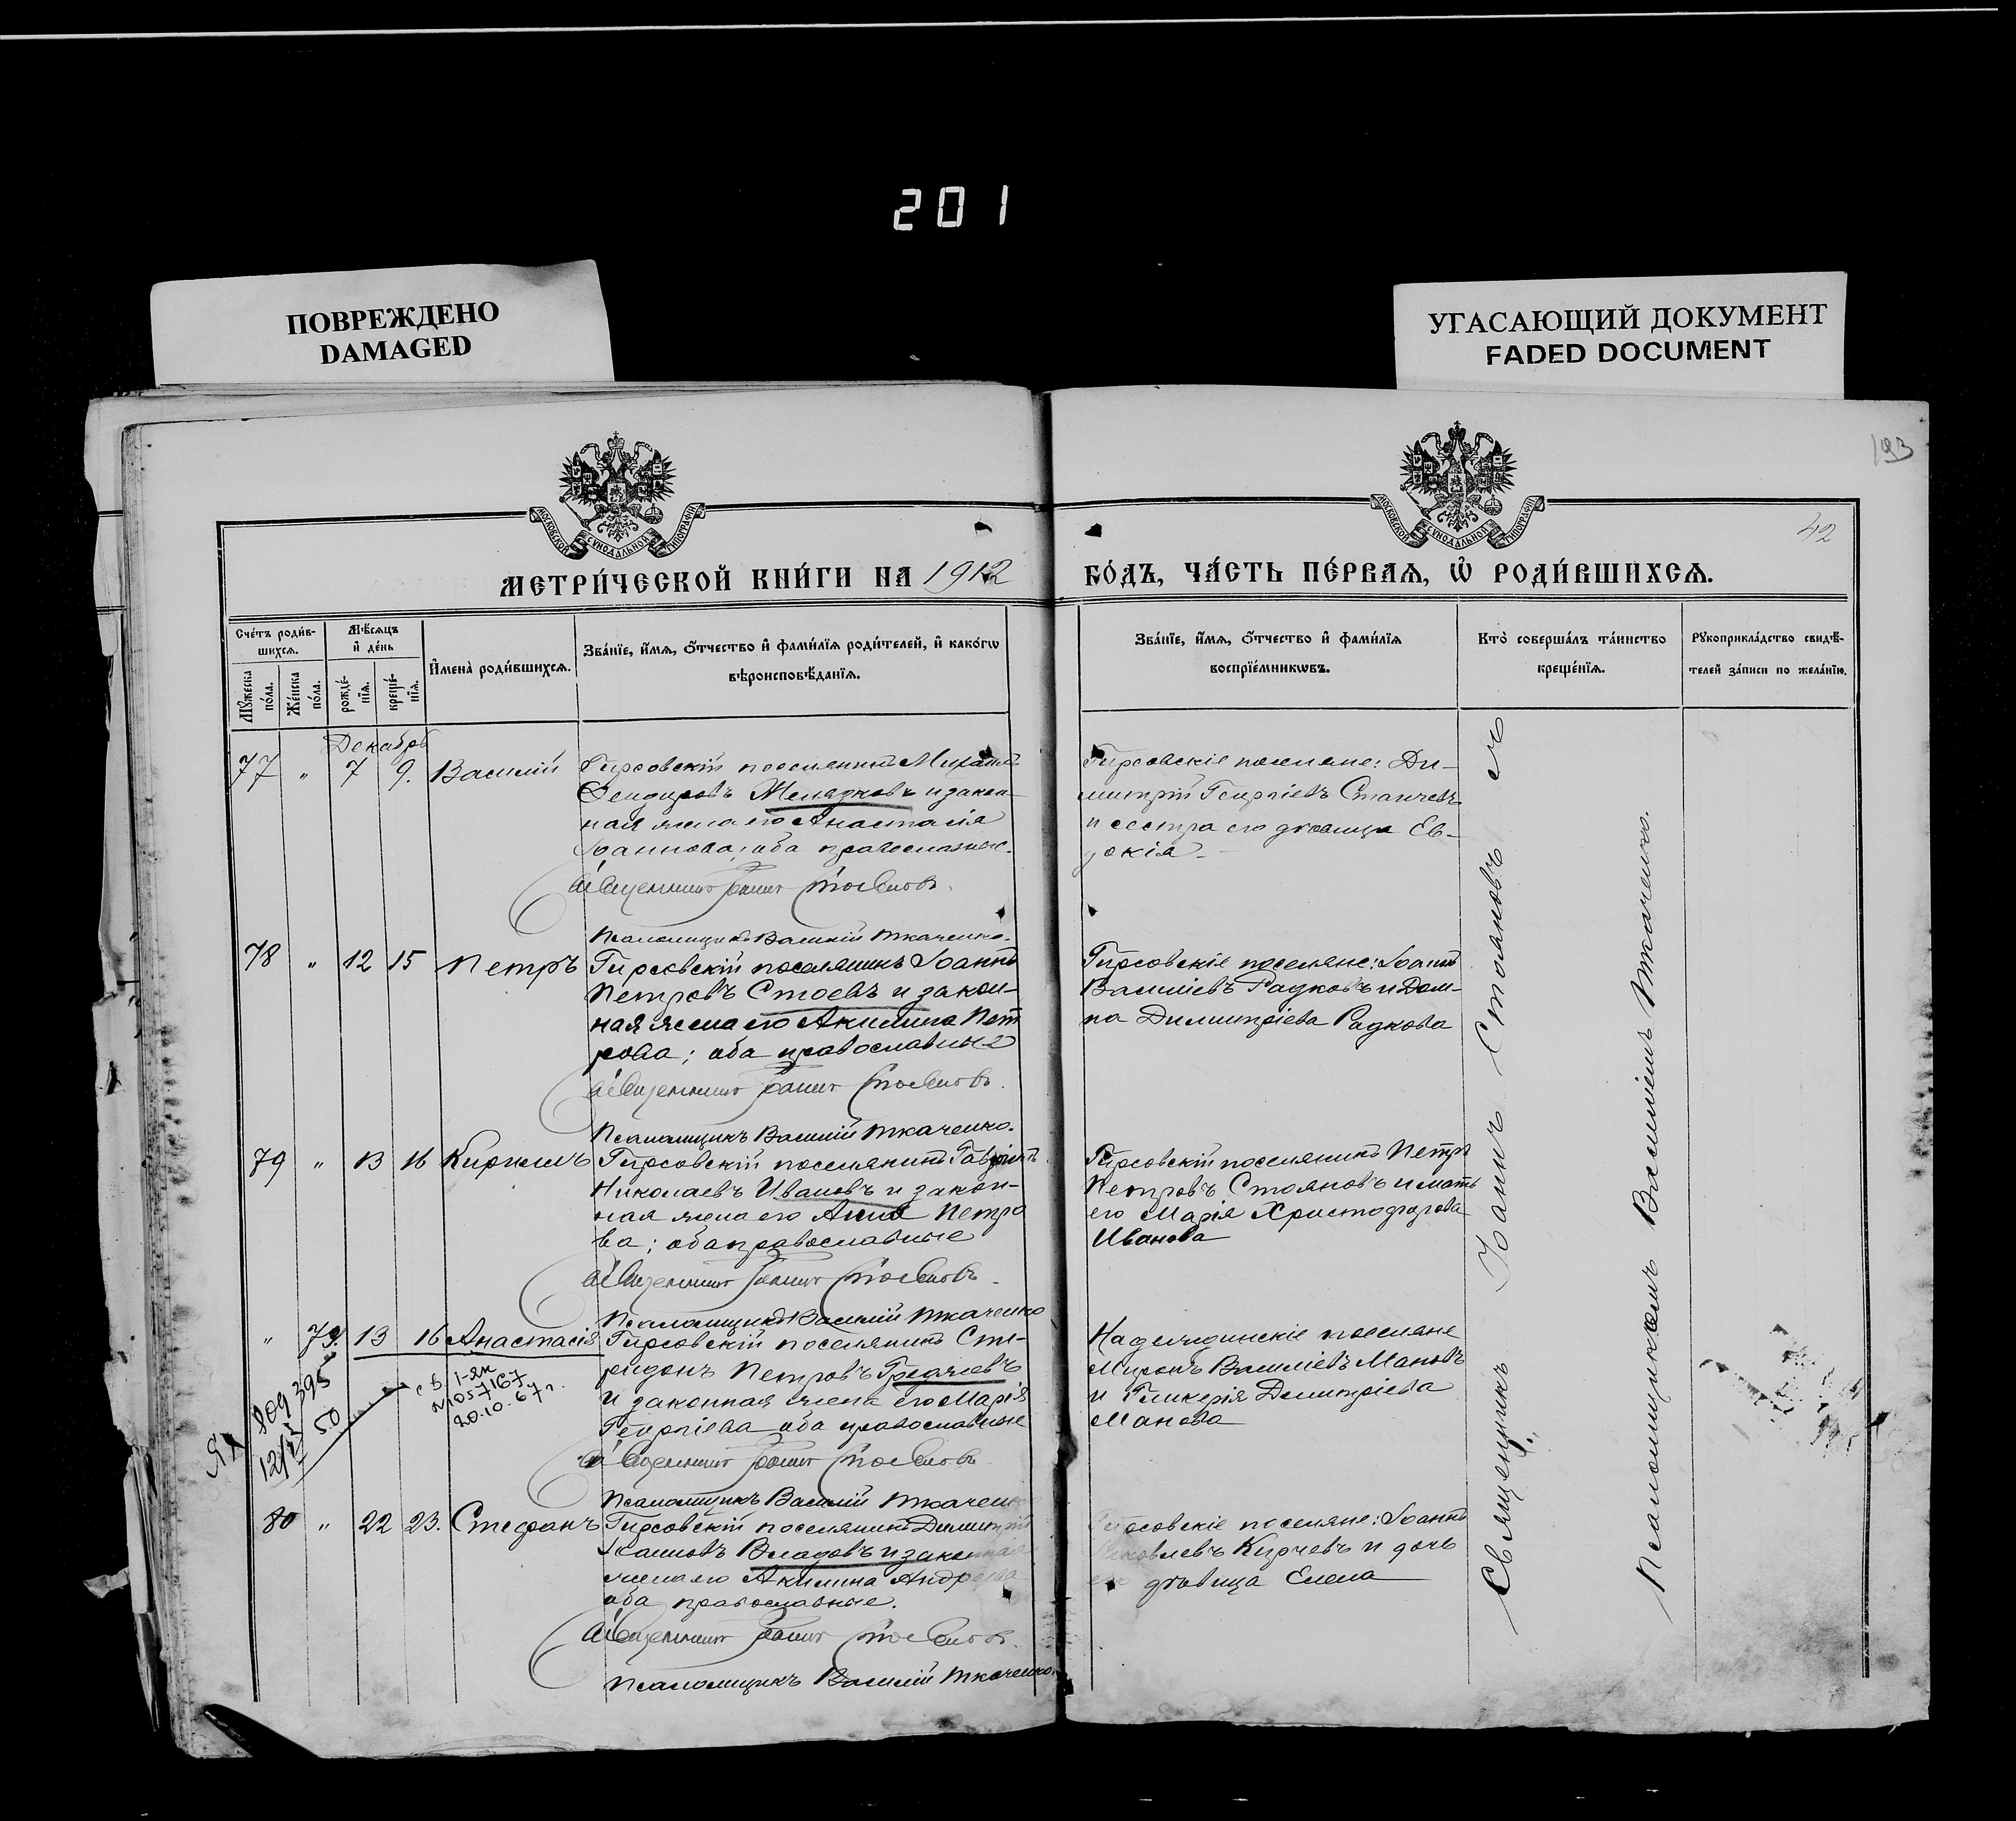 201
ПОВРЕЖДЕНО
DAMAGED
УГАСАЮЩИЙ ДОКУМЕНТ
FADED DOCUMENT
193
42
МОСКОВСКОЙ СѴНОДАЛЬНОЙ ТИПОГРАФІИ
МОСКОВСКОЙ СѴНОДАЛЬНОЙ ТИПОГРАФІИ
МЕТРИ́ЧЕСКОЙ КНИ́ГИ НА 1912 ГО́ДЪ, ЧА́СТЬ ПЕ́РВАЯ, Ѡ҆ РОДИ́ВШИХСЯ.
Сче́тъ роди́в-
шихся.
Мꙋ́жеска по́ла.
Же́нска по́ла.
Мѣ́сяцъ и҆ де́нь
рожде́-
нїя.
креще́-
нїя.
И҆мена̀ роди́вшихся.
Зва́нїе, и҆́мя, ѻ҆́тчество и҆ фами́лїя роди́телей, и҆ како́гѡ
вѣроисповѣ́данїя.
Зва́нїе, и҆́мя, ѻ҆́тчество и҆ фами́лїя
воспрїе́мникѡвъ.
Кто̀ соверша́лъ та́инство
креще́нїя.
Рꙋкоприкла́дство свидѣ́-
телей за́писи по жела́нїю.
Декабрь
77 " 7 9. Василій
Гирсовскій поселянинъ Михаилъ
Желязковъ и закон-
ная жена его Анастасія
Іоаннова; оба православные.
Священникъ Іоаннъ Стояновъ.
Псаломщикъ Василій Ткаченко.
Гирсовскіе поселяне: Ди-
митрій Георгіевъ Станчевъ
и сестра его дѣвица Ев-
докія.
78 " 12 15 Петръ
Гирсовскій поселянинъ Іоаннъ
Петровъ Стоевъ и закон-
ная жена его Акилина Пет
рова; оба православные
Священникъ Іоаннъ Стояновъ.
Псаломщикъ Василій Ткаченко.
Гирсовскіе поселяне: Іоаннъ
Василіевъ Радковъ и Дом-
на Димитріева Радкова
79 " 13 16 Кириллъ
Гирсовскій поселянинъ Гавріилъ
Николаевъ Ивановъ и закон-
ная жена его Анна Петро
ва; оба православные
Священникъ Іоаннъ Стояновъ.
Псаломщикъ Василій Ткаченко
Гирсовскій поселянинъ Петръ
Петровъ Стояновъ и мать
его Марія Христофорова
Иванова
" 79. 13 16 Анастасія
Гирсовскій поселянинъ Спи-
ридонъ Петровъ
и законная жена его Марія
Георгіева оба православные
Священникъ Іоаннъ Стояновъ
Псаломщикъ Василій Ткаченко
Надеждинскіе поселяне
Миронъ Василіевъ Мановъ
и Гликерія Димитріева
Манова
809395
50
св. I-ЯК
№057167
20.10.67 г.
80 " 22 23. Стефанъ
Гирсовскій поселянинъ Димитрій
Іоанновъ Владовъ и законная
жена его Акилина Андреева
оба православные.
Священникъ Іоаннъ Стояновъ.
Псаломщикъ Василій Ткаченко.
Гирсовскіе поселяне: Іоаннъ
Яковлевъ Кирчевъ и дочь
его дѣвица Елена
Священникъ Іоаннъ Стояновъ съ
Псаломщикомъ Василіемъ Ткаченко.